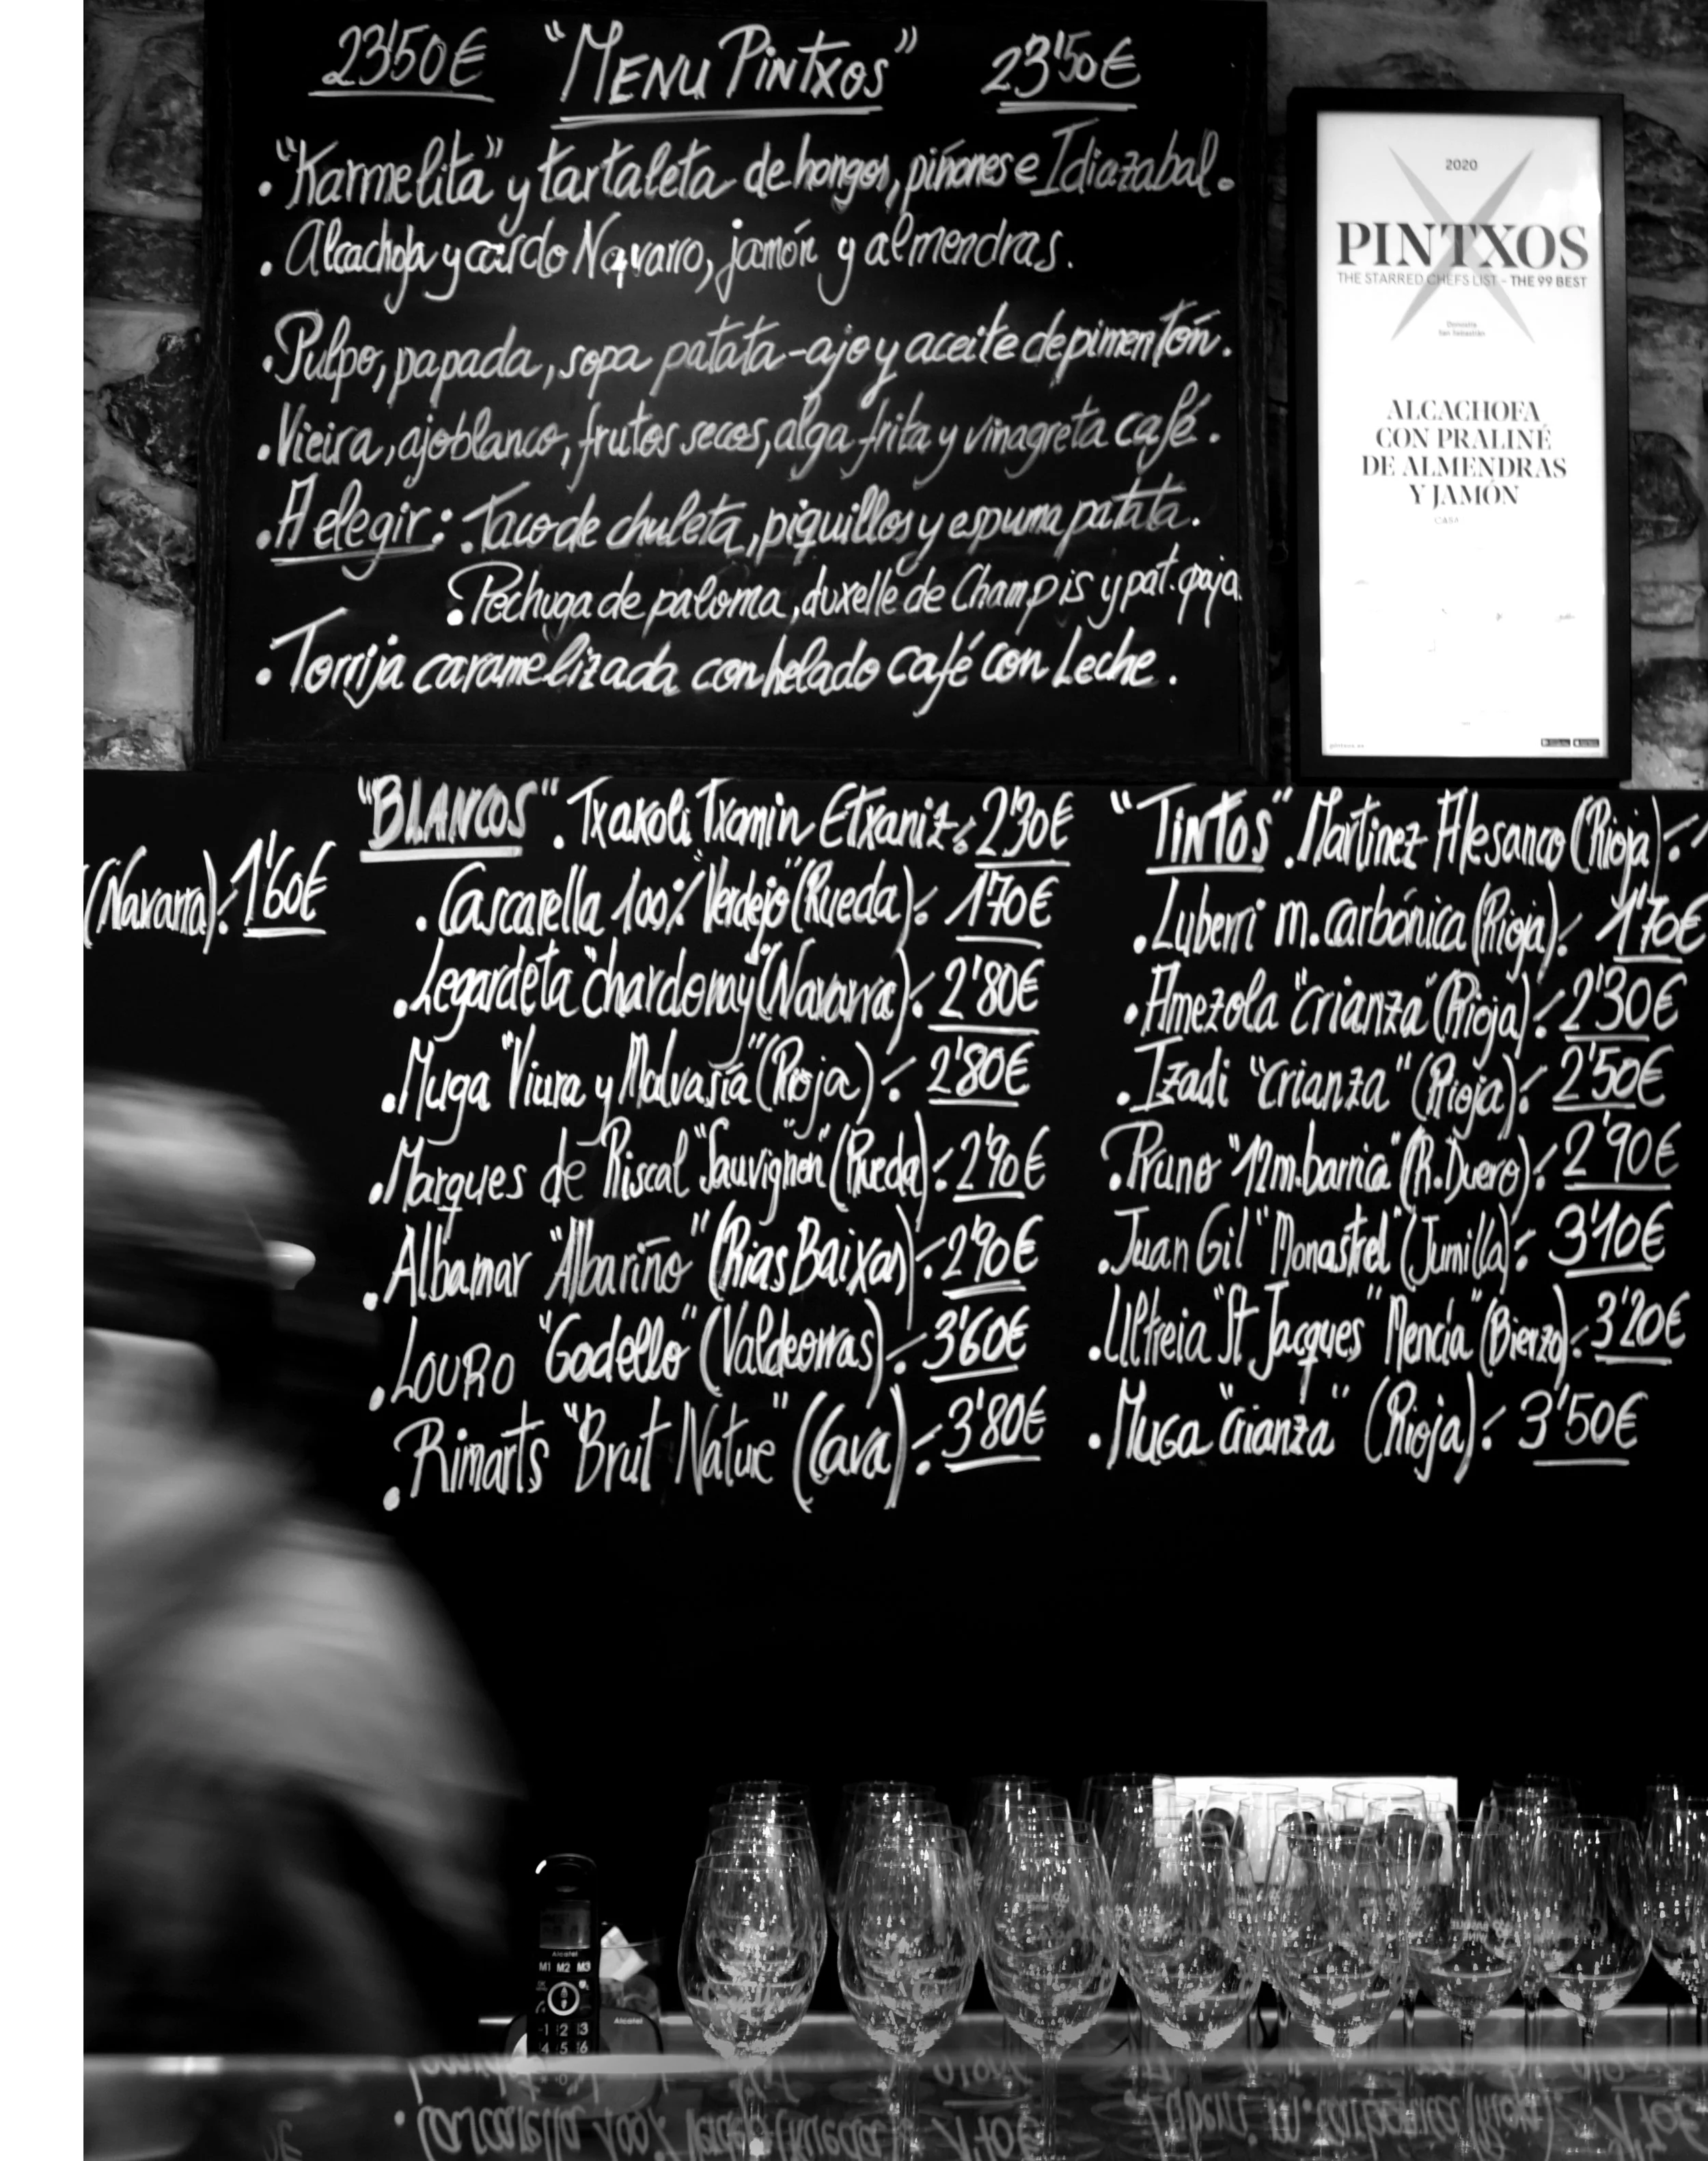 23'50€ "MENU PINTXOS" 23'50€
. "Karmelita" y tartaleta de hongos, piñones e Idiazabal.
. Alcachofa y cardo Navarro, jamón y almendras.
. Pulpo, papada, sopa patata-ajo y aceite de pimentón.
. Vieira, ajoblanco, frutos secos, alga frita y vinagreta café.
. A elegir: . Taco de chuleta, piquillos y espuma patata.
. Pechuga de paloma, duxelle de Champis y pat. paja.
. Torrija caramelizada con helado café con Leche.
2020
PINTXOS
THE STARRED CHEFS LIST - THE 99 BEST
Donostia
San Sebastián
ALCACHOFA
CON PRALINÉ
DE ALMENDRAS
Y JAMÓN
CASA
(Navarra): 1'60€
"BLANCOS" . Txakoli Txomin Etxaniz: 2'30€
. Cascarella 100% "Verdejo" (Rueda): 1'70€
. Legardeta "chardonnay" (Navarra): 2'80€
. Muga "Viura y Malvasía" (Rioja): 2'80€
. Marques de Riscal "Sauvignon" (Rueda): 2'90€
. Albamar "Albariño" (Rias Baixas): 2'90€
. LOURO "Godello" (Valdeorras): 3'60€
. Rimarts "Brut Natue" (Cava): 3'80€
"TINTOS" . Martinez Alesanco (Rioja):
. Luberri m. carbónica (Rioja): 1'70€
. Amezola "crianza" (Rioja): 2'30€
. Izadi "crianza" (Rioja): 2'50€
. Pruno "12m. barrica" (R. Duero): 2'90€
. Juan Gil "Monastrel" (Jumilla): 3'10€
. Ultreia "St Jacques" Mencía" (Bierzo): 3'20€
. Muga "crianza" (Rioja): 3'50€
Alcatel
M1 M2 M3
1 2 3
4 5 6
Alcatel